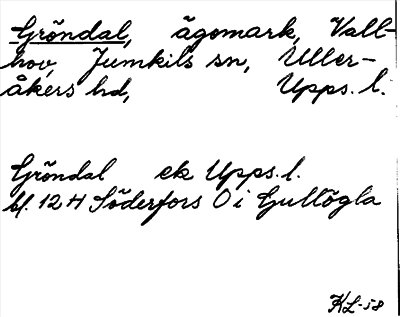 Gröndal, ägomark, Vall-
hov, Jumkils sn, Uller-
åkers hd, Upps. l.
Gröndal ek Upps. l.
bl. 12 H Söderfors O i Gullögla
KL-58